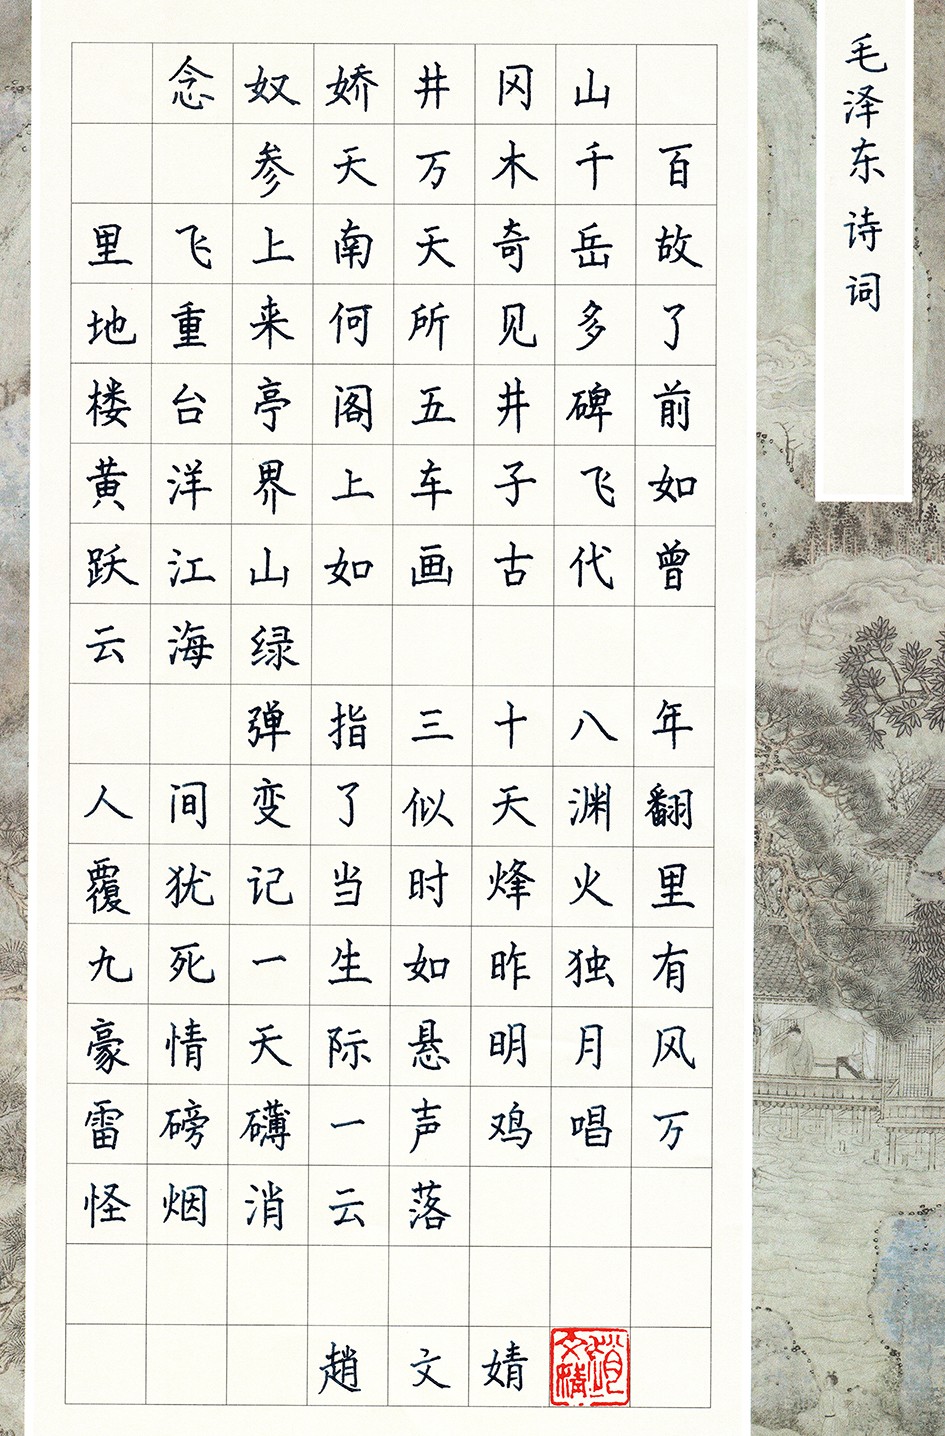 毛泽东诗词
念奴娇井冈山
参天万木千百
里飞上南天奇岳故
地重来何所见多了
楼台亭阁五井碑前
黄洋界上车子飞如
跃江山如画古代曾
云海绿
弹指三十八年
人间变了似天渊翻
覆犹记当时烽火里
九死一生如昨独有
豪情天际悬明月风
雷磅礴一声鸡唱万
怪烟消云落
趙文婧
趙文婧